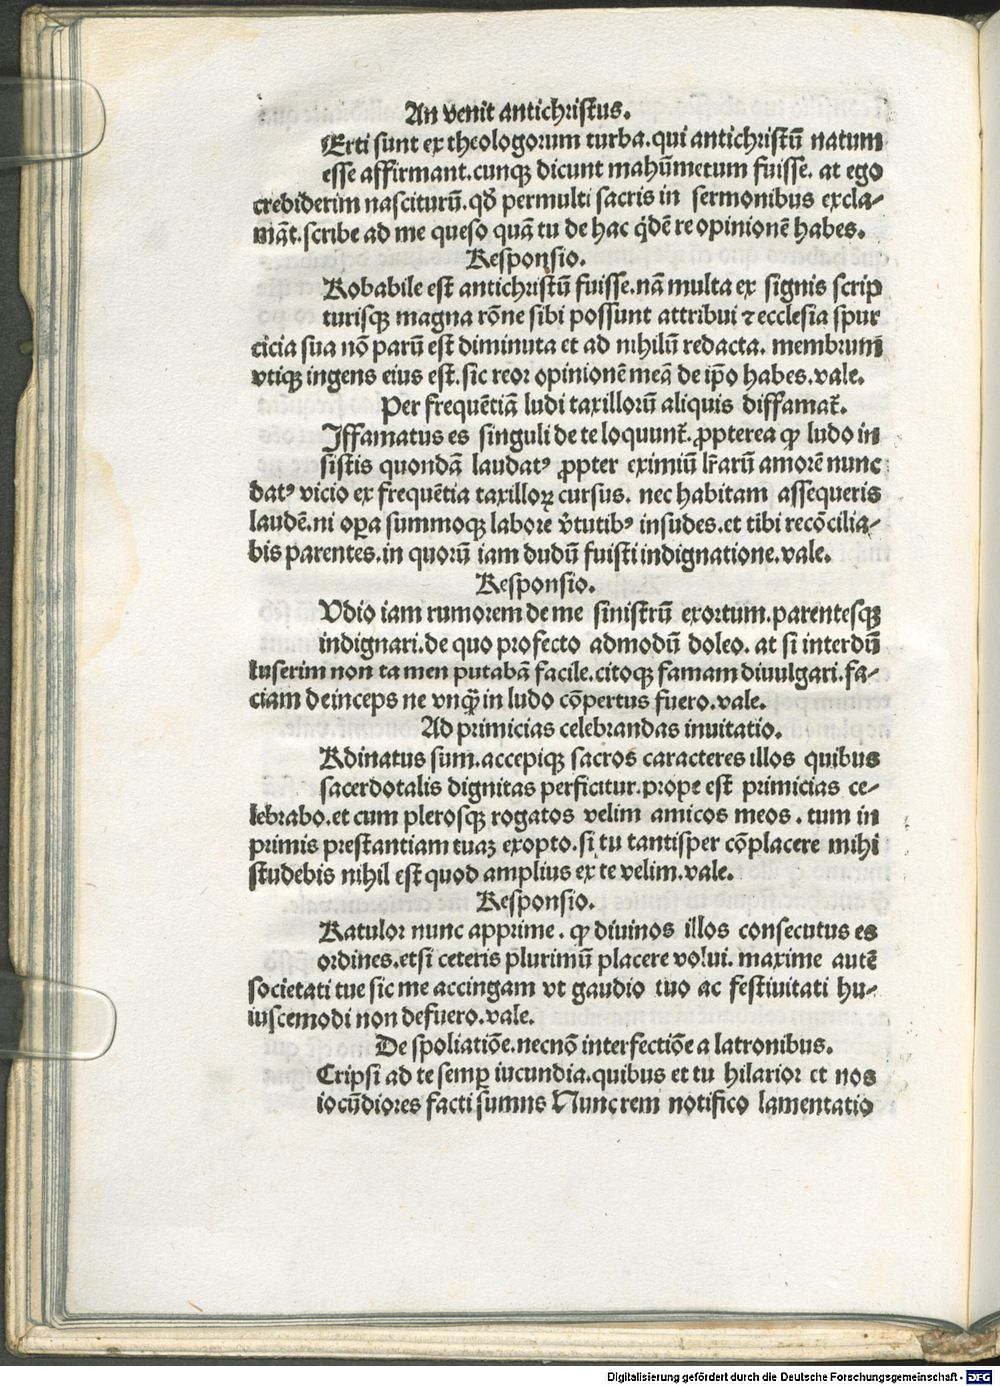 An venit antichristus.
Erti sunt ex theologorum turba.qui antichristū natum
esse affirmant.cunqꝫ dicunt mahūmetum fuisse. at ego
crediderim nasciturū.qđ permulti sacris in sermonibus excla-
māt.scribe ad me queso quā tu de hac q̇dē re opinionē habes.
Responsio.
Robabile est antichristū fuisse.nā multa ex signis scrip
turisqꝫ magna rōne sibi possunt attribui ⁊ ecclesia spur
cicia sua nō parū est diminuta et ad nihilū redacta. membrum
vtiqꝫ ingens eius est.sic reor opinionē meā de ip̄o habes.vale.
Per frequētiā ludi taxillorū aliquis diffamat̄.
Iffamatus es singuli de te loquunt̄. ꝓpterea ꝙ ludo in
sistis quondā laudatꝰ ꝓpter eximiū lr̄arū amorē nunc
datꝰ vicio ex frequētia taxilloꝝ cursus. nec habitam assequeris
laudē.ni oꝑa summoqꝫ labore v̓tutibꝰ insudes.et tibi recōcilia-
bis parentes.in quorū iam dudū fuisti indignatione.vale.
Responsio.
Vdio iam rumorem de me sinistrū exortum.parentesqꝫ
indignari.de quo profecto admodū doleo. at si interdū
luserim non tamen putabā facile.citoqꝫ famam diuulgari.fa-
ciam deinceps ne vnqꝫ̄ in ludo cōpertus fuero.vale.
Ad primicias celebrandas inuitatio.
Rdinatus sum.accepiqꝫ sacros caracteres illos quibus
sacerdotalis dignitas perficitur.prope est primicias ce-
lebrabo.et cum plerosqꝫ rogatos velim amicos meos. tum in
primis prestantiam tuaꝫ exopto.si tu tantisper cōplacere mihi
studebis nihil est quod amplius ex te velim.vale.
Responsio.
Ratulor nunc apprime. ꝙ diuinos illos consecutus es
ordines.etsi ceteris p̄lurimū placere volui. maxime autē
societati tue sic me accingam vt gaudio tuo ac festiuitati hu-
iuscemodi non defuero.vale.
De spoliatiōe.necnō interfectiōe a latronibus.
Cripsi ad te semꝑ iucundia.quibus et tu hilarior et nos
iocūdiores facti sumus Nunc rem notifico lamentatio
Digitalisierung gefördert durch die Deutsche Forschungsgemeinschaft - DFG